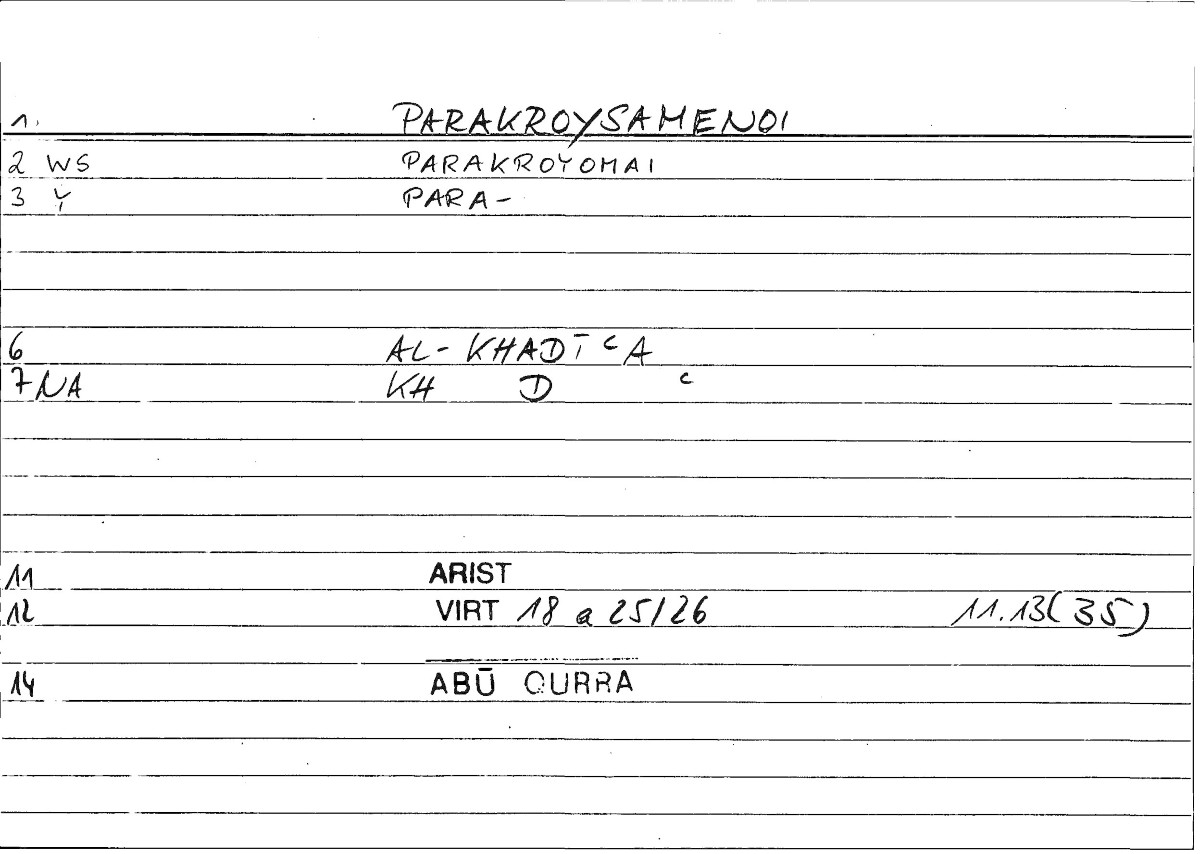 1. PARAKROYSAMENOI
2 WS PARAKROYOMAI
3 Y PARA-
6 AL-KHADĪ‘A
7 NA KH D ‘
11 ARIST
12 VIRT 18 a 25/26 11.13(35)
14 ABŪ QURRA